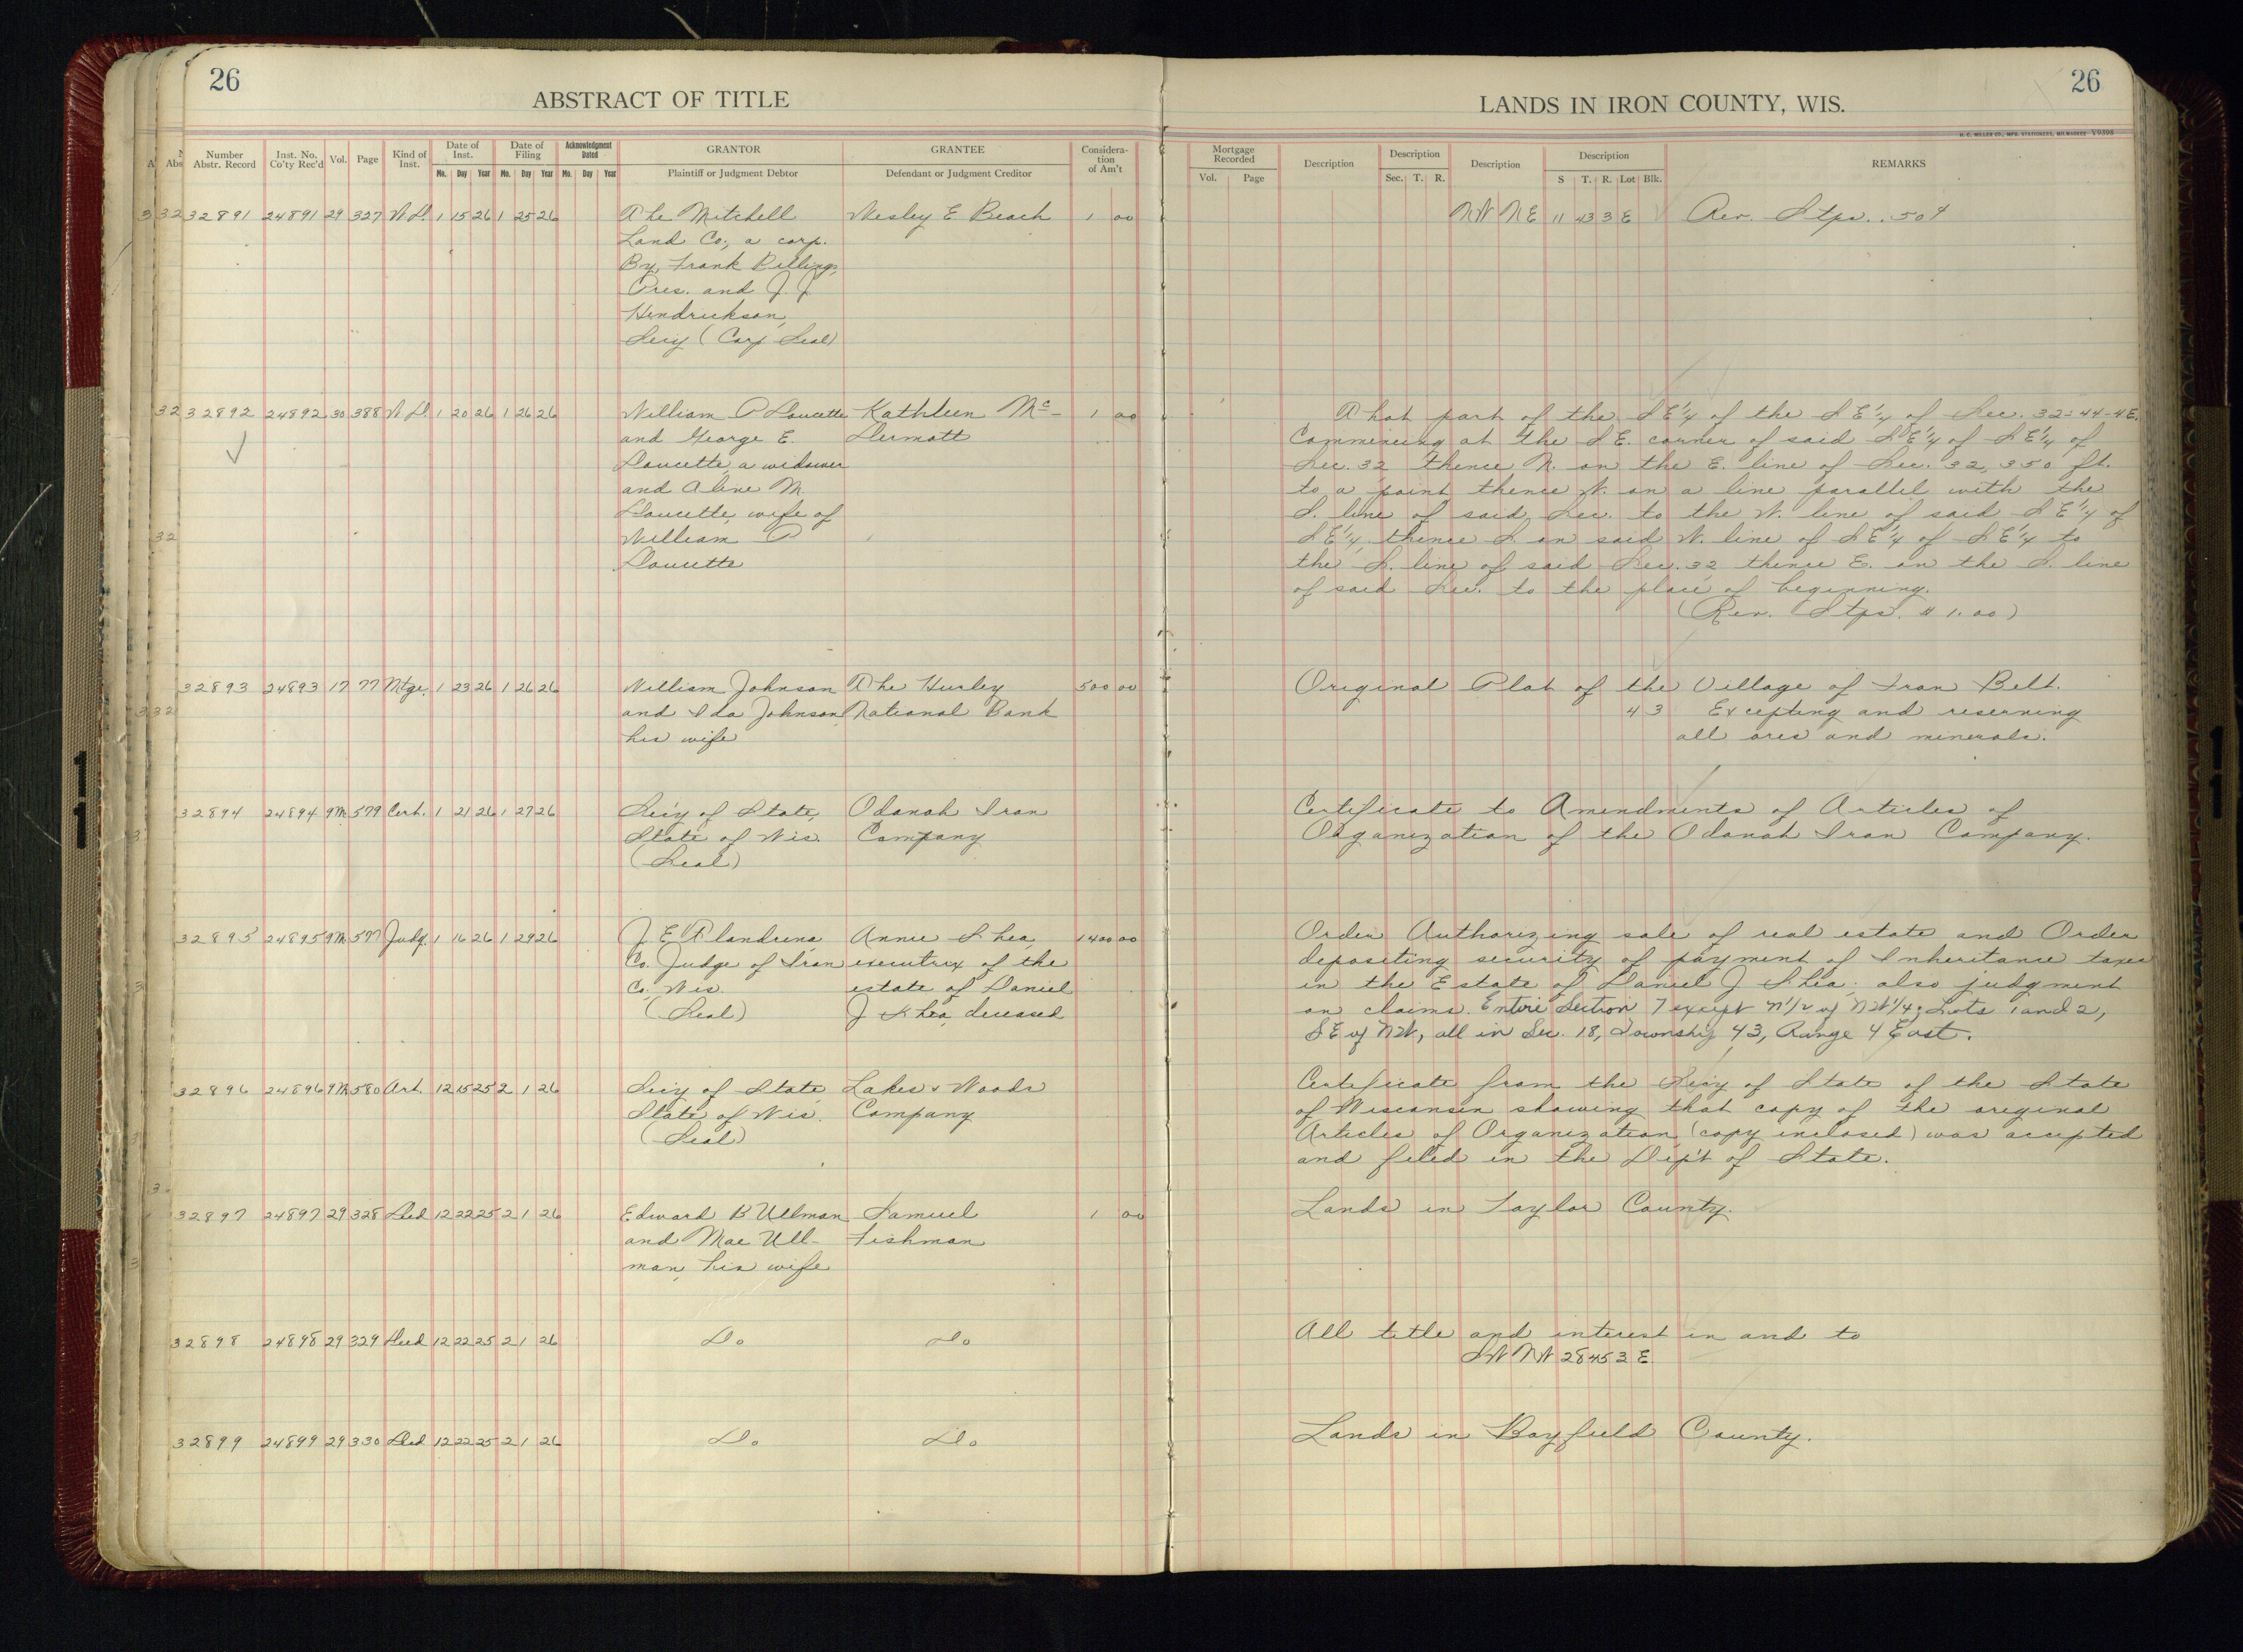 26
ABSTRACT OF TITLE
Number Abstr. Record Inst. No. Co'ty Rec'd Vol. Page Kind of Inst. Date of Inst. Date of Filing Acknowledgment Dated GRANTOR GRANTEE Considera-tion of Am't
Mo. Day Year Mo. Day Year Mo. Day Year Plaintiff or Judgment Debtor Defendant or Judgment Creditor
32891 24891 29 327 W.D. 1 15 26 1 25 26 The Mitchell Wesley E Beach 1 00
Land Co., a corp.
By, Frank Billings,
Pres. and J. J.
Hendrickson,
Sec'y (Corp Seal)
32892 24892 30 388 W.D. 1 20 26 1 26 26 William P Doucette Kathleen Mc- 1 00
and George E. Dermott
Doucette, a widower
and Aline M.
Doucette, wife of
William P
Doucette
32893 24893 17 77 Mtge. 1 23 26 1 26 26 William Johnson The Hurley 500 00
and Ida Johnson, National Bank
his wife
32894 24894 9M 579 Cert. 1 21 26 1 27 26 Sec'y of State, Odanah Iron
State of Wis. Company
(Seal)
32895 24895 9M 577 Judg. 1 16 26 1 29 26 J. E. Flandrena, Annie Shea, 1400 00
Co. Judge of Iron executrix of the
Co., Wis. estate of Daniel
(Seal) J Shea, deceased
32896 24896 9M 580 Art. 12 15 25 2 1 26 Sec'y of State, Lakes & Woods
State of Wis. Company
(Seal)
32897 24897 29 328 Deed 12 22 25 2 1 26 Edward B Ullman Samuel 1 00
and Mae Ull- Fishman
man, his wife
32898 24898 29 329 Deed 12 22 25 2 1 26 Do Do
32899 24899 29 330 Deed 12 22 25 2 1 26 Do Do
26
LANDS IN IRON COUNTY, WIS.
H. C. MILLER CO., MFG. STATIONERS, MILWAUKEE V9398
Mortgage Recorded Description Description Description Description REMARKS
Vol. Page Sec. T. R. S T. R. Lot Blk.
NW NE 11 43 3 E Rev. Stps. .50¢
That part of the SE¼ of the SE¼ of Sec. 32-44-4E.
Commencing at the SE. corner of said SE¼ of SE¼ of
Sec. 32 thence N. on the E. line of Sec. 32, 350 ft.
to a point thence W. on a line parallel with the
S. line of said Sec. to the W. line of said SE¼ of
SE¼, thence S. on said W. line of SE¼ of SE¼ to
the S. line of said Sec. 32 thence E. on the S. line
of said Sec. to the place of beginning.
(Rev. Stps. $1.00)
Original Plat of the Village of Iron Belt.
43 Excepting and reserving
all ores and minerals.
Certificate to Amendments of Articles of
Organization of the Odanah Iron Company.
Order Authorizing sale of real estate and Order
depositing security of payment of Inheritance taxes
in the Estate of Daniel J Shea: also judgment
on claims. Entire Section 7 except N1/2 of NW1/4; Lots 1 and 2,
SE of NW, all in Sec. 18, Township 43, Range 4 East.
Certificate from the Sec'y of State of the State
of Wisconsin showing that copy of the original
Articles of Organization (copy inclosed) was accepted
and filed in the Dep't of State.
Lands in Taylor County.
All title and interest in and to
SW NW 28 45 3 E
Lands in Bayfield County.